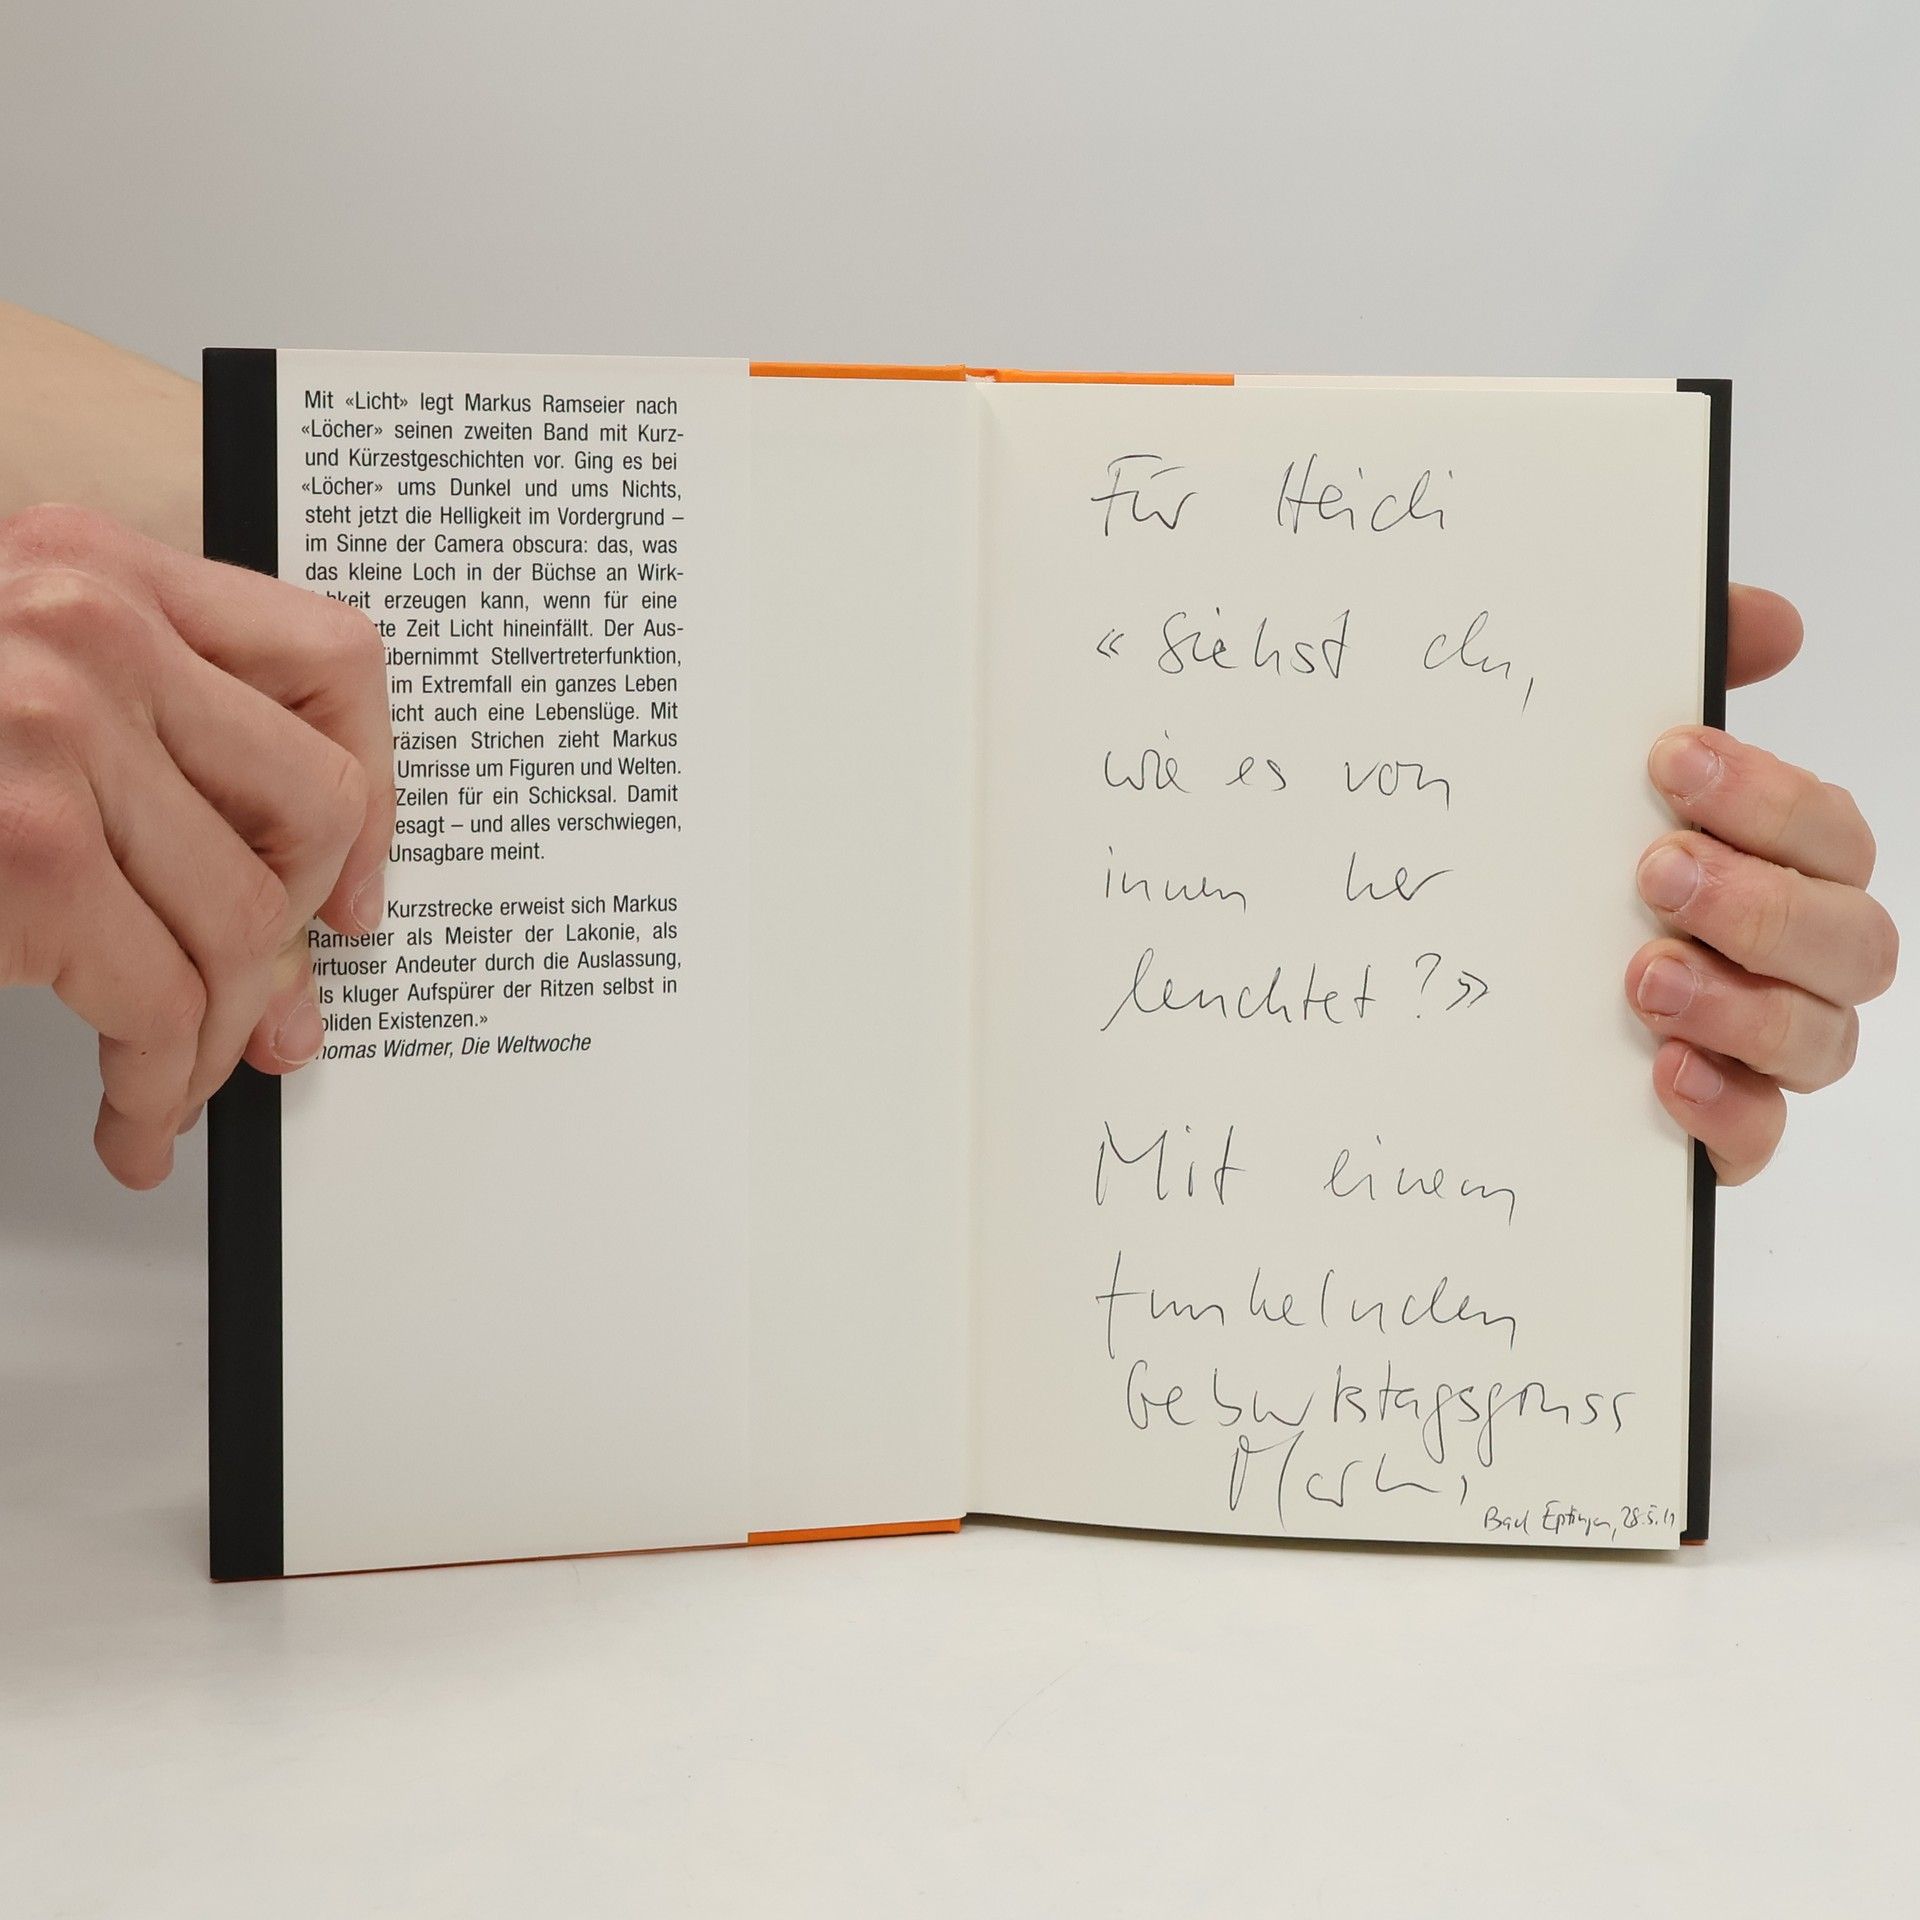 Mit «Licht» legt Markus Ramseier nach
«Löcher» seinen zweiten Band mit Kurz-
und Kürzestgeschichten vor. Ging es bei
«Löcher» ums Dunkel und ums Nichts,
steht jetzt die Helligkeit im Vordergrund –
im Sinne der Camera obscura: das, was
das kleine Loch in der Büchse an Wirk-
keit erzeugen kann, wenn für eine
te Zeit Licht hineinfällt. Der Aus-
übernimmt Stellvertreterfunktion,
im Extremfall ein ganzes Leben
icht auch eine Lebenslüge. Mit
räzisen Strichen zieht Markus
Umrisse um Figuren und Welten.
Zeilen für ein Schicksal. Damit
esagt – und alles verschwiegen,
Unsagbare meint.
Kurzstrecke erweist sich Markus
Ramseier als Meister der Lakonie, als
virtuoser Andeuter durch die Auslassung,
ls kluger Aufspürer der Ritzen selbst in
oliden Existenzen.»
homas Widmer, Die Weltwoche
Für Heidi
«Siehst du,
wie es von
innen her
leuchtet?»
Mit einem
funkelnden
Geburtstagsgruss
Markus
Bad Eptingen, 28.5.11